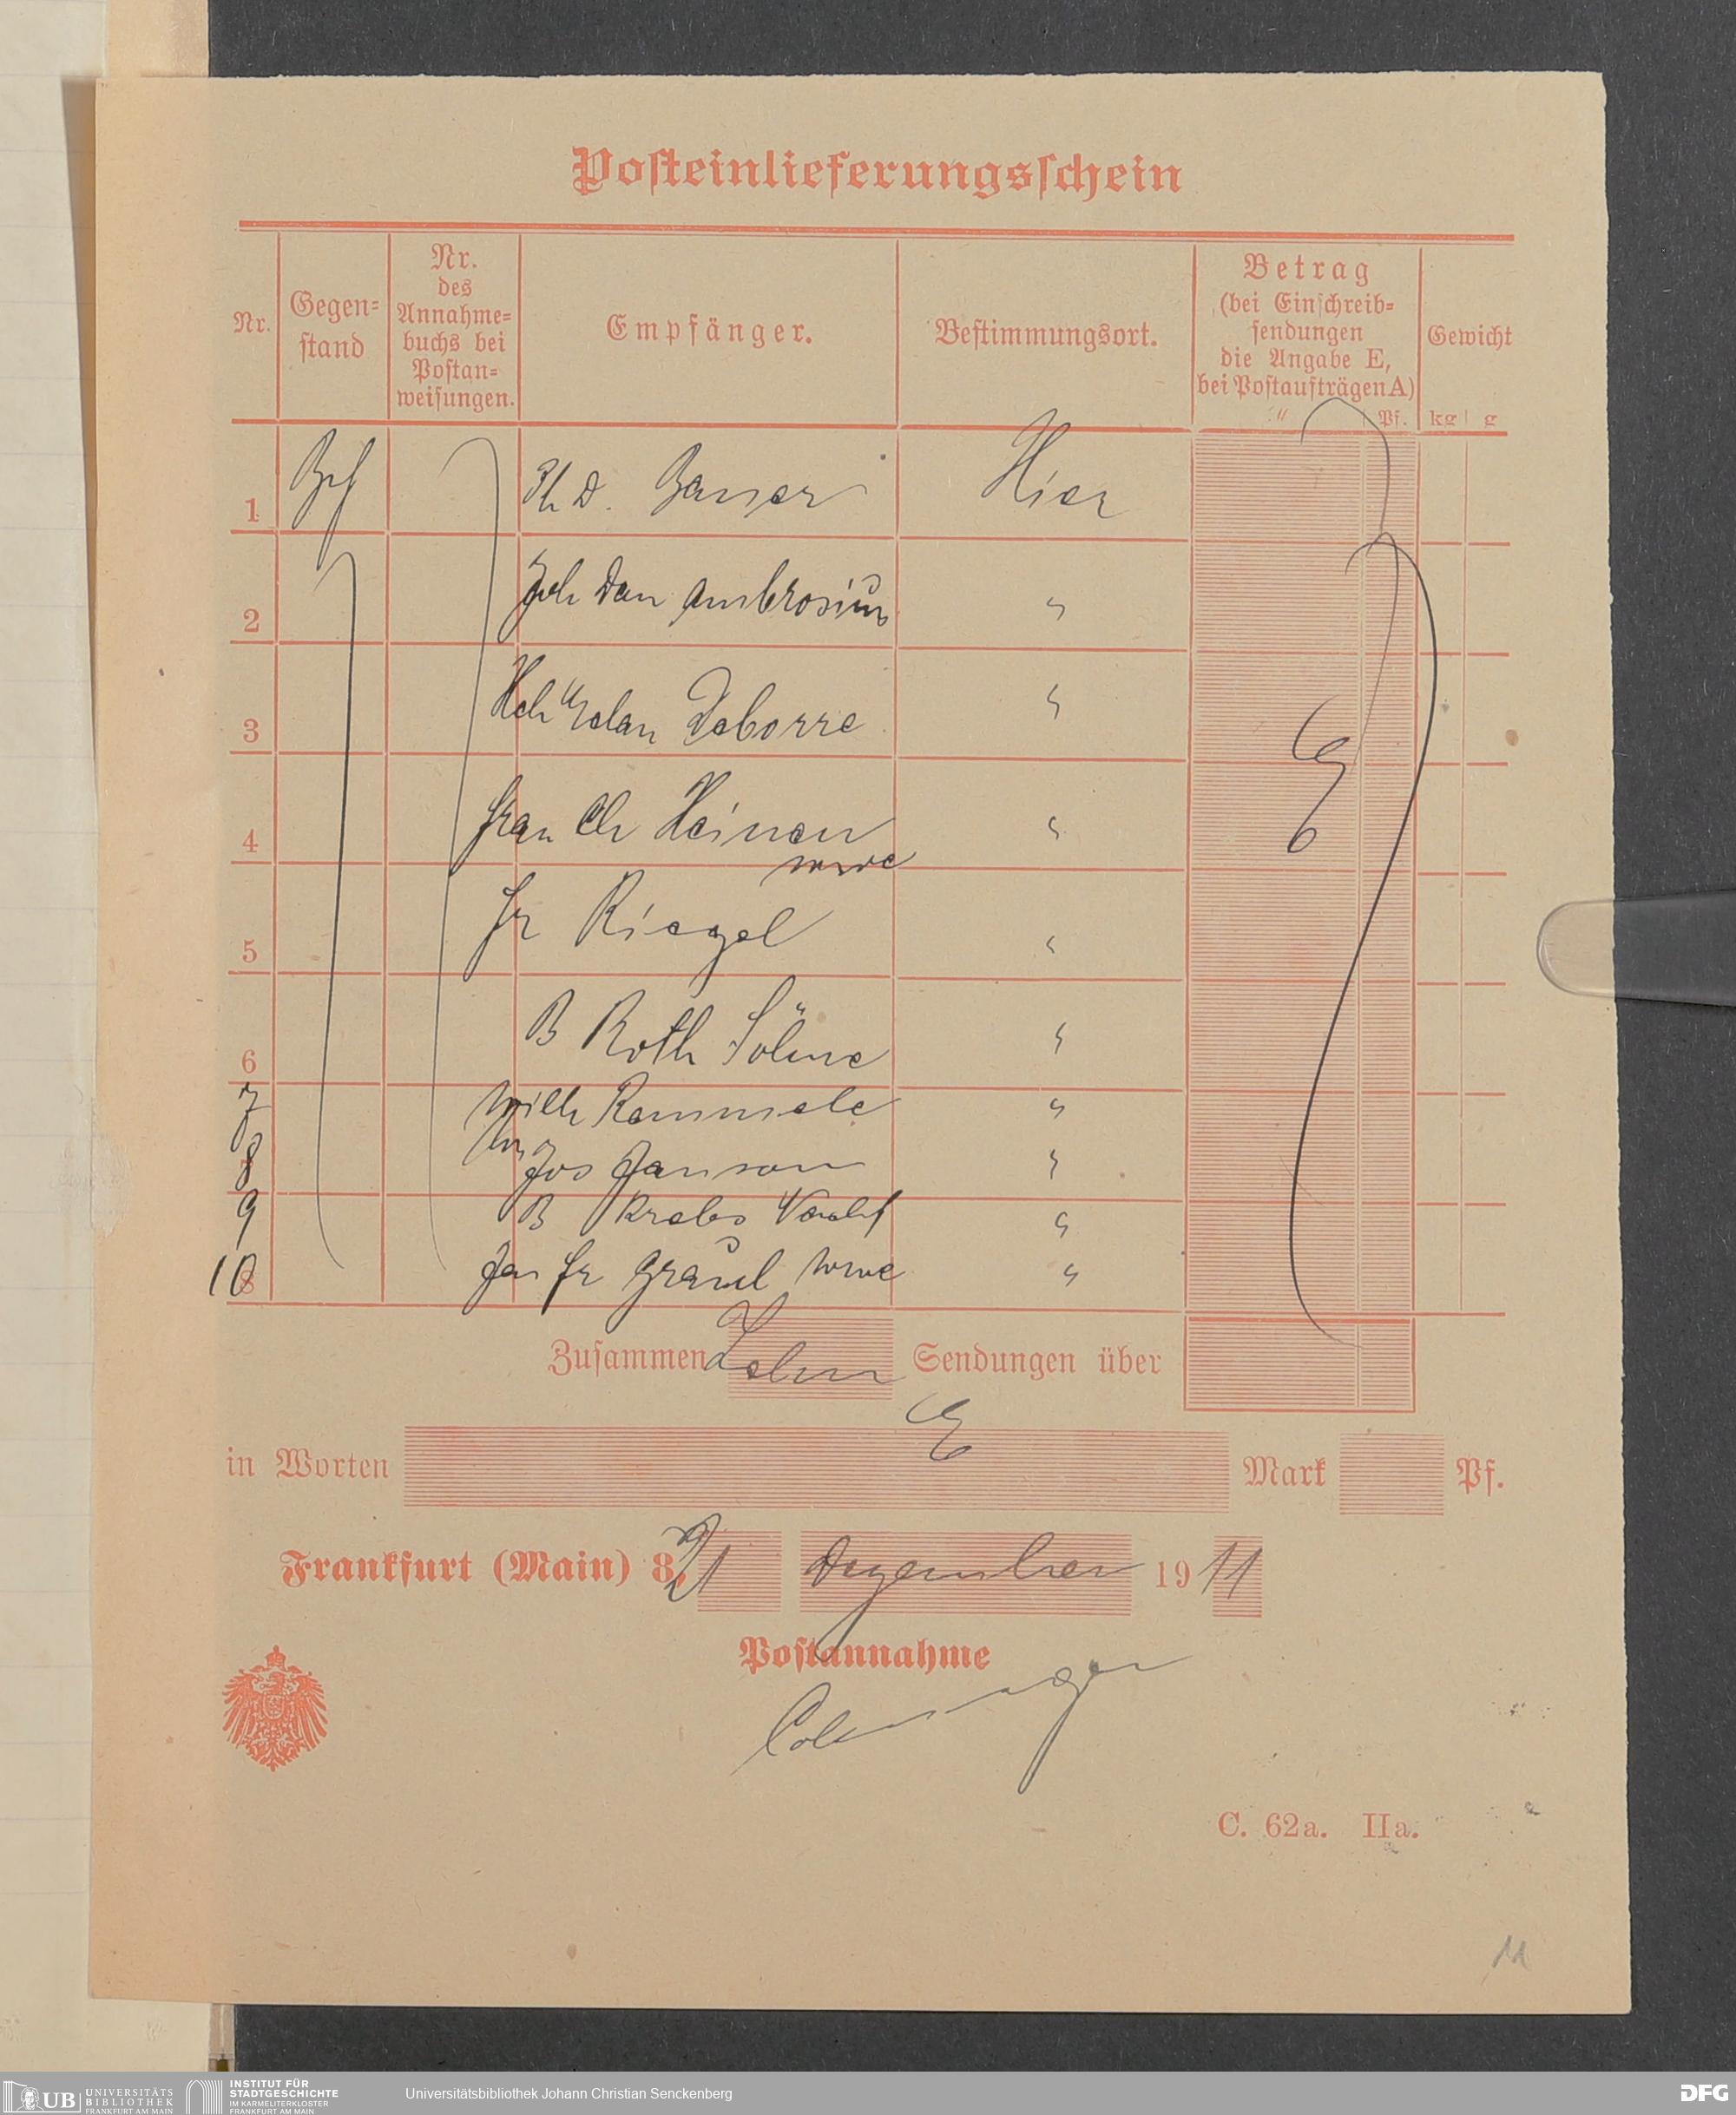 Posteinlieferungsschein
Nr.
Gegen-
stand
Nr.
des
Annahme-
buchs bei
Postan-
weisungen.
Empfänger.
Bestimmungsort.
Betrag
(bei Einschreib-
sendungen
die Angabe E,
bei Postaufträgen A)
Pf.
Gewicht
kg g
1 Brf D. Hier
2 Joh Dan Ambrosius "
3 Deborre "
4 Frau Heinen "
Wwe
5 Fr Riegel "
6 B Roth Söhne "
7 Wilh Rammele "
8 Jos Janson "
9 B Krebs "
10 Fr Wwe "
E
Zusammen Zehn Sendungen über
in Worten E Mark Pf.
Frankfurt (Main) 8, 21 Dezember 1911
Postannahme
C. 62a. IIa.
11
UB UNIVERSITÄTS
BIBLIOTHEK
FRANKFURT AM MAIN
INSTITUT FÜR
STADTGESCHICHTE
IM KARMELITERKLOSTER
FRANKFURT AM MAIN
Universitätsbibliothek Johann Christian Senckenberg
DFG